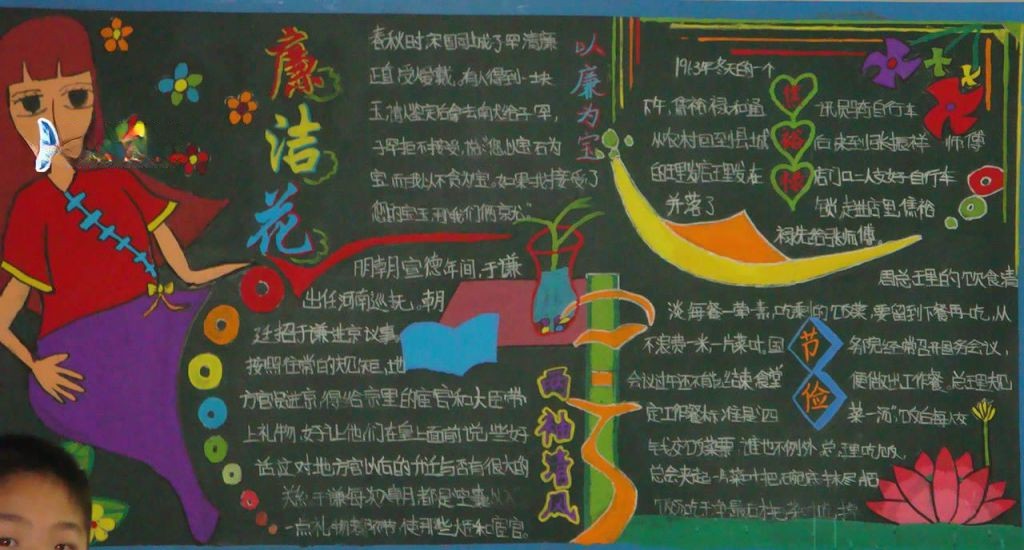 廉洁花
以廉为宝
春秋时宋国司城子罕清廉
正直受爱戴。有人得到一块
玉,请人鉴定后拿去献给子罕,
子罕拒不接受,说:您以宝石为
宝,而我以不贪为宝。如果我接受了
您的宝玉,那我们俩
明朝宣德年间,于谦
出任河南巡抚。朝
廷招于谦进京议事,
按照往常的规矩,地
方官员进京,得给京里的官和大臣带
上礼物,好让他们在皇上面前说些好
话,这对地方官以后的升迁与否有很大的
关系,于谦每次
一点礼物
两袖清风
1963年冬天的一个
焦裕禄
下午,焦裕禄和通讯员骑自行车
从农村回到县城后来到张振祥师傅
的理发店里理发。在店门口一支好自行车
并落了锁,走进店里,焦裕
禄先给张师傅
节俭
周总理的饮食清
淡,每餐一荤一素,吃剩的饭菜,要留到下餐再吃,从
不浪费一米一片菜叶。国务院经常召开国务会议,
会议过午还不能结束,食堂便做出工作餐。总理规
定工作餐标准是"四菜一汤",饭后每人交
钱交菜票,谁也不例外。总理吃饭,
总会夹起一片菜叶把碗底抹尽,把